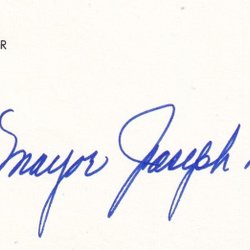 R
Mayor Joseph